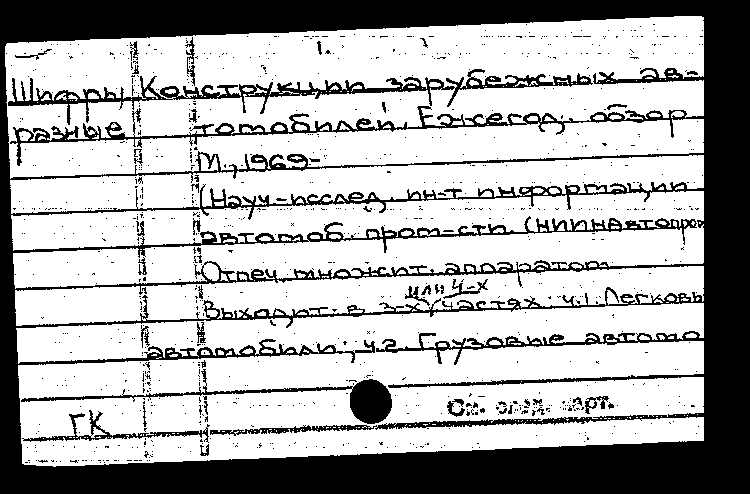 1.
Шифры Конструкции зарубежных ав-
разные томобилей. Ежегод. обзор
М., 1969-
(Науч-исслед. ин-т информации
автомоб. пром-сти (НИИНАвтопром
Отпеч. множит. аппаратом
или 4-х
Выходит в 3-х частях: ч.1. Легковы
автомобили; ч.2 Грузовые автомо
ГК
См. след. карт.